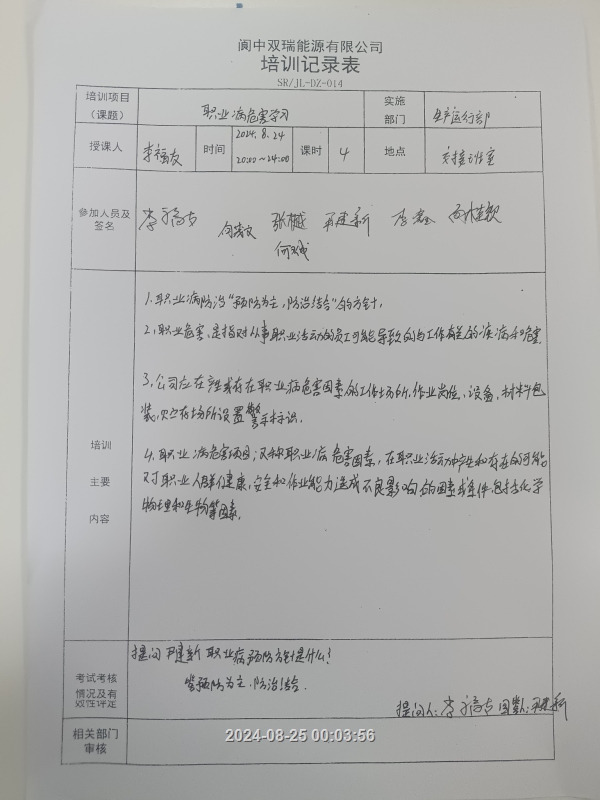 阆中双瑞能源有限公司
培训记录表
SR/JL-DZ-014
培训项目
（课题）
职业病危害学习
实施
部门
生产运行部
授课人
李福友
时间
2024.8.24
20:00~24:00
课时
4
地点
参加人员及
签名
培训
主要
内容
1.职业病防治“预防为主，防治结合”的方针，
2.职业危害，是指对从事职业活动的员工可能导致的与工作有关的疾病和危害
3.公司应在产生或存在职业病危害因素的工作场所，作业岗位、设备、材料包
装，贮存场所设置警示标识。
4.职业病危害项目；又称职业病危害因素，在职业活动中产生和存在的可能
对职业人群健康，安全和作业能力造成不良影响的因素或条件，包括化学
物理和生物等因素。
考试考核
情况及有
效性评定
提问 职业病预防方针是什么？
答预防为主，防治结合.
提问人: 回答人:
相关部门
审核
2024-08-25 00:03:56